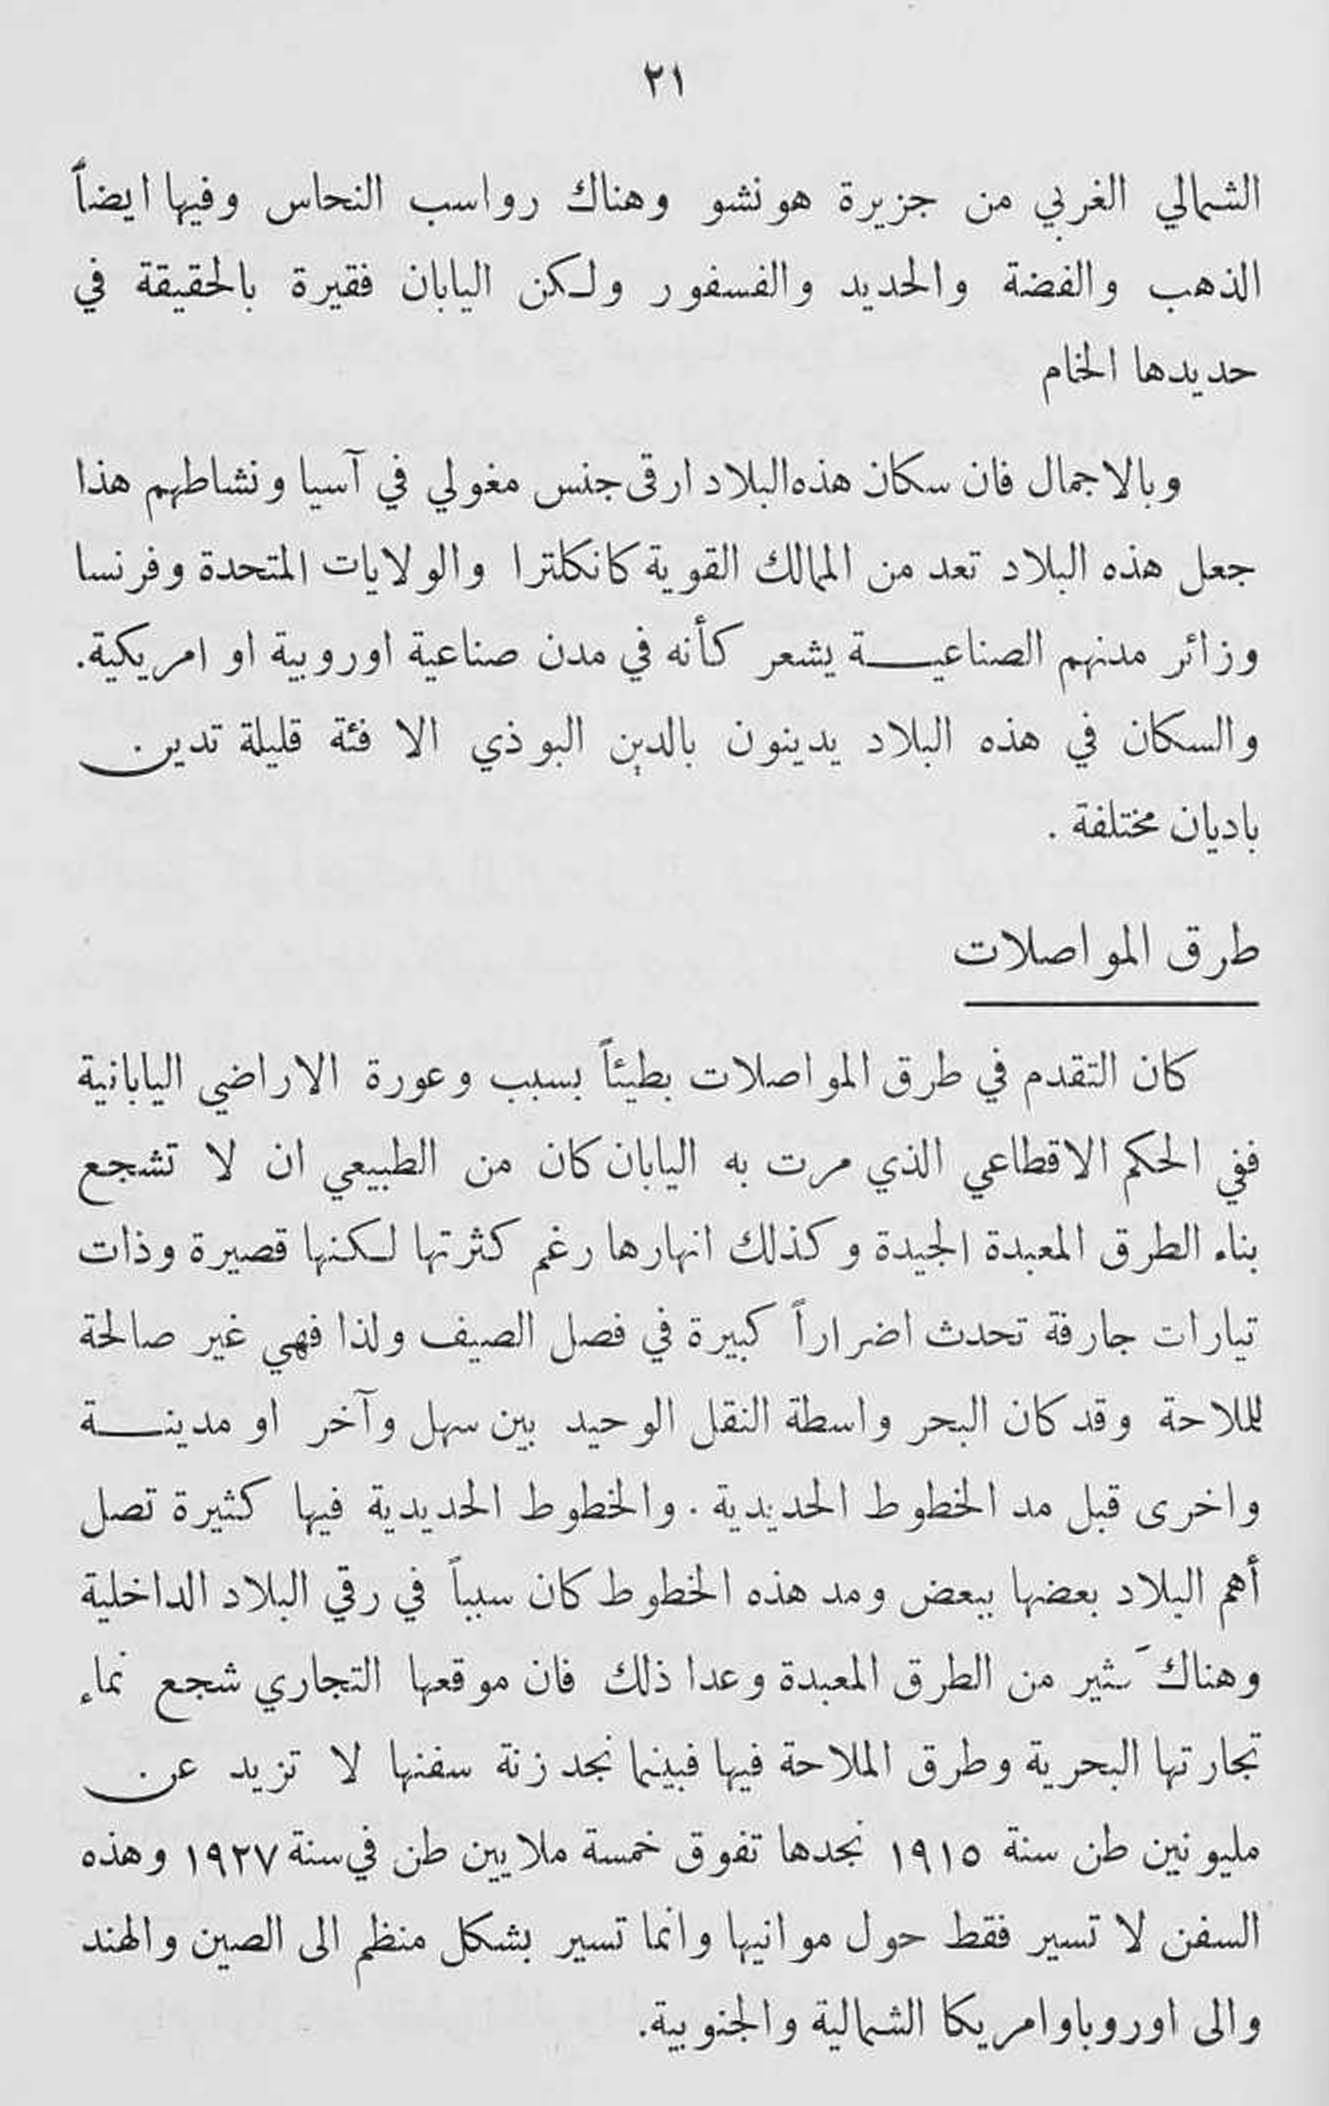 ٢١
الشمالي الغربي من جزيرة هونشو وهناك رواسب النحاس وفيها ايضاً
الذهب والفضة والحديد والفسفور ولكن اليابان فقيرة بالحقيقة في
حديدها الخام
وبالاجمال فان سكان هذه البلاد ارقى جنس مغولي في آسيا ونشاطهم هذا
جعل هذه البلاد تعد من الممالك القوية كانكلترا والولايات المتحدة وفرنسا
وزائر مدنهم الصناعيـــة يشعر كأنه في مدن صناعية اوروبية او امريكية.
والسكان في هذه البلاد يدينون بالدين البوذي الا فئة قليلة تدين
باديان مختلفة .
طرق المواصلات
كان التقدم في طرق المواصلات بطيئاً بسبب وعورة الاراضي اليابانية
ففي الحكم الاقطاعي الذي مرت به اليابان كان من الطبيعي ان لا تشجع
بناء الطرق المعبدة الجيدة وكذلك انهارها رغم كثرتها لكنها قصيرة وذات
تيارات جارفة تحدث اضراراً كبيرة في فصل الصيف ولذا فهي غير صالحة
للملاحة وقد كان البحر واسطة النقل الوحيد بين سهل وآخر او مدينـــة
واخرى قبل مد الخطوط الحديدية . والخطوط الحديدية فيها كثيرة تصل
أهم البلاد بعضها ببعض ومد هذه الخطوط كان سبباً في رقي البلاد الداخلية
وهناك كثير من الطرق المعبدة وعدا ذلك فان موقعها التجاري شجع نماء
تجارتها البحرية وطرق الملاحة فيها فبينما نجد زنة سفنها لا تزيد عن
مليونين طن سنة ١٩١٥ نجدها تفوق خمسة ملايين طن في سنة ١٩٢٧ وهذه
السفن لا تسير فقط حول موانيها وانما تسير بشكل منظم الى الصين والهند
والى اوروبا وامريكا الشمالية والجنوبية.